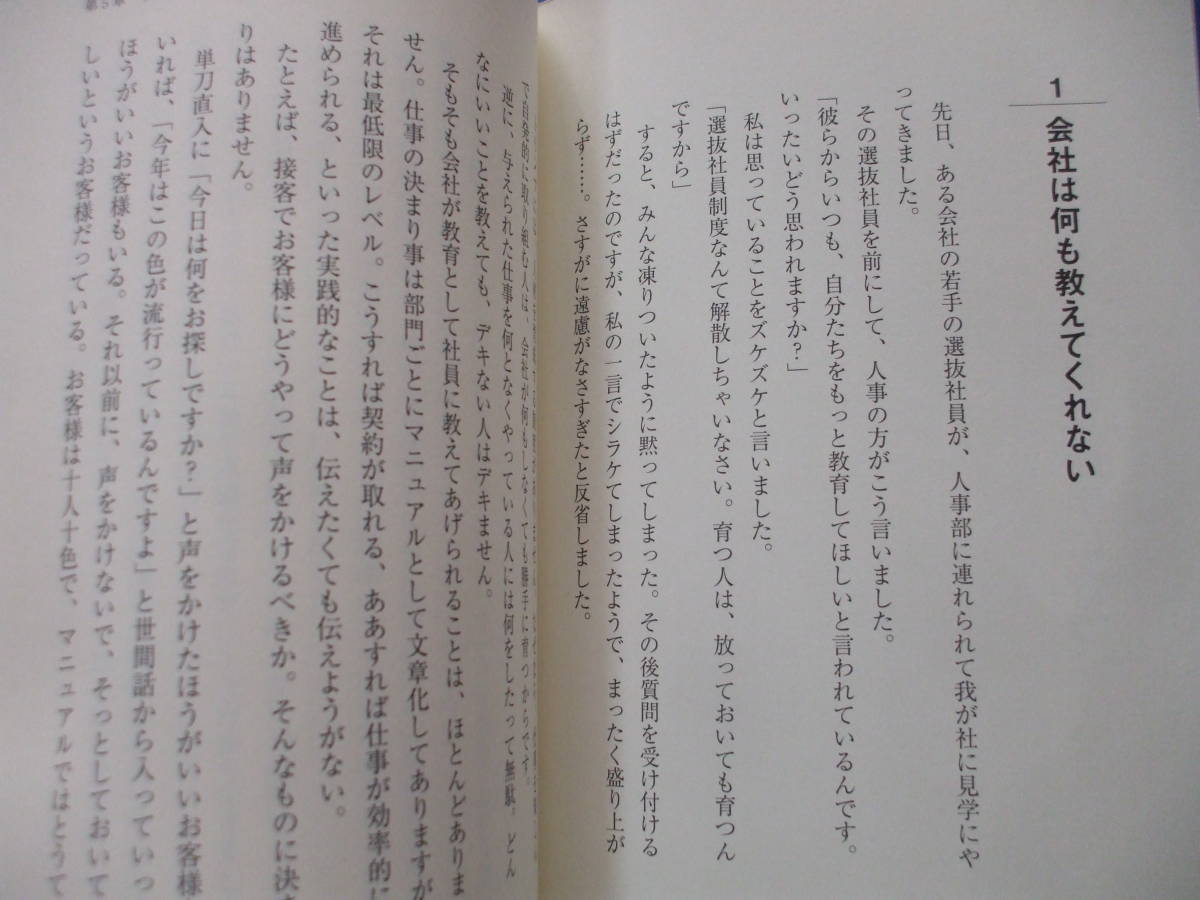 1
会社は何も教えてくれない
先日、ある会社の若手の選抜社員が、人事部に連れられて我が社に見学にや
ってきました。
その選抜社員を前にして、人事の方がこう言いました。
「彼らからいつも、自分たちをもっと教育してほしいと言われているんです。
いったいどう思われますか?」
私は思っていることをズケズケと言いました。
「選抜社員制度なんて解散しちゃいなさい。育つ人は、放っておいても育つん
ですから」
すると、みんな凍りついたように黙ってしまった。その後質問を受け付ける
はずだったのですが、私の一言でシラケてしまったようで、まったく盛り上が
らず……。さすがに遠慮がなさすぎたと反省しました。
で自発的に取り組む人は、会社が何もしなくても勝手に育つからです。
逆に、与えられた仕事を何となくやっている人には何をしたって無駄。どん
なにいいことを教えても、デキない人はデキません。
そもそも会社が教育として社員に教えてあげられることは、ほとんどありま
せん。仕事の決まり事は部門ごとにマニュアルとして文章化してありますが
それは最低限のレベル。こうすれば契約が取れる、ああすれば仕事が効率的に
進められる、といった実践的なことは、伝えたくても伝えようがない。
たとえば、接客でお客様にどうやって声をかけるべきか。そんなものに決ま
りはありません。
単刀直入に「今日は何をお探しですか?」と声をかけたほうがいいお客様
いれば、「今年はこの色が流行っているんですよ」と世間話から入っていっ
ほうがいいお客様もいる。それ以前に、声をかけないで、そっとしておいて
しいというお客様だっている。お客様は十人十色で、マニュアルではとうて
第5章